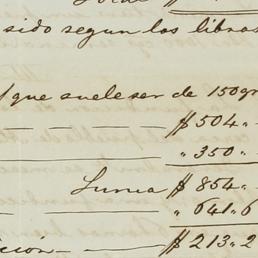 sido segun los libros
que suele ser de 150 gr
$ 504.
" 350
Suma $ 854.
" 641.6
$ 213.2